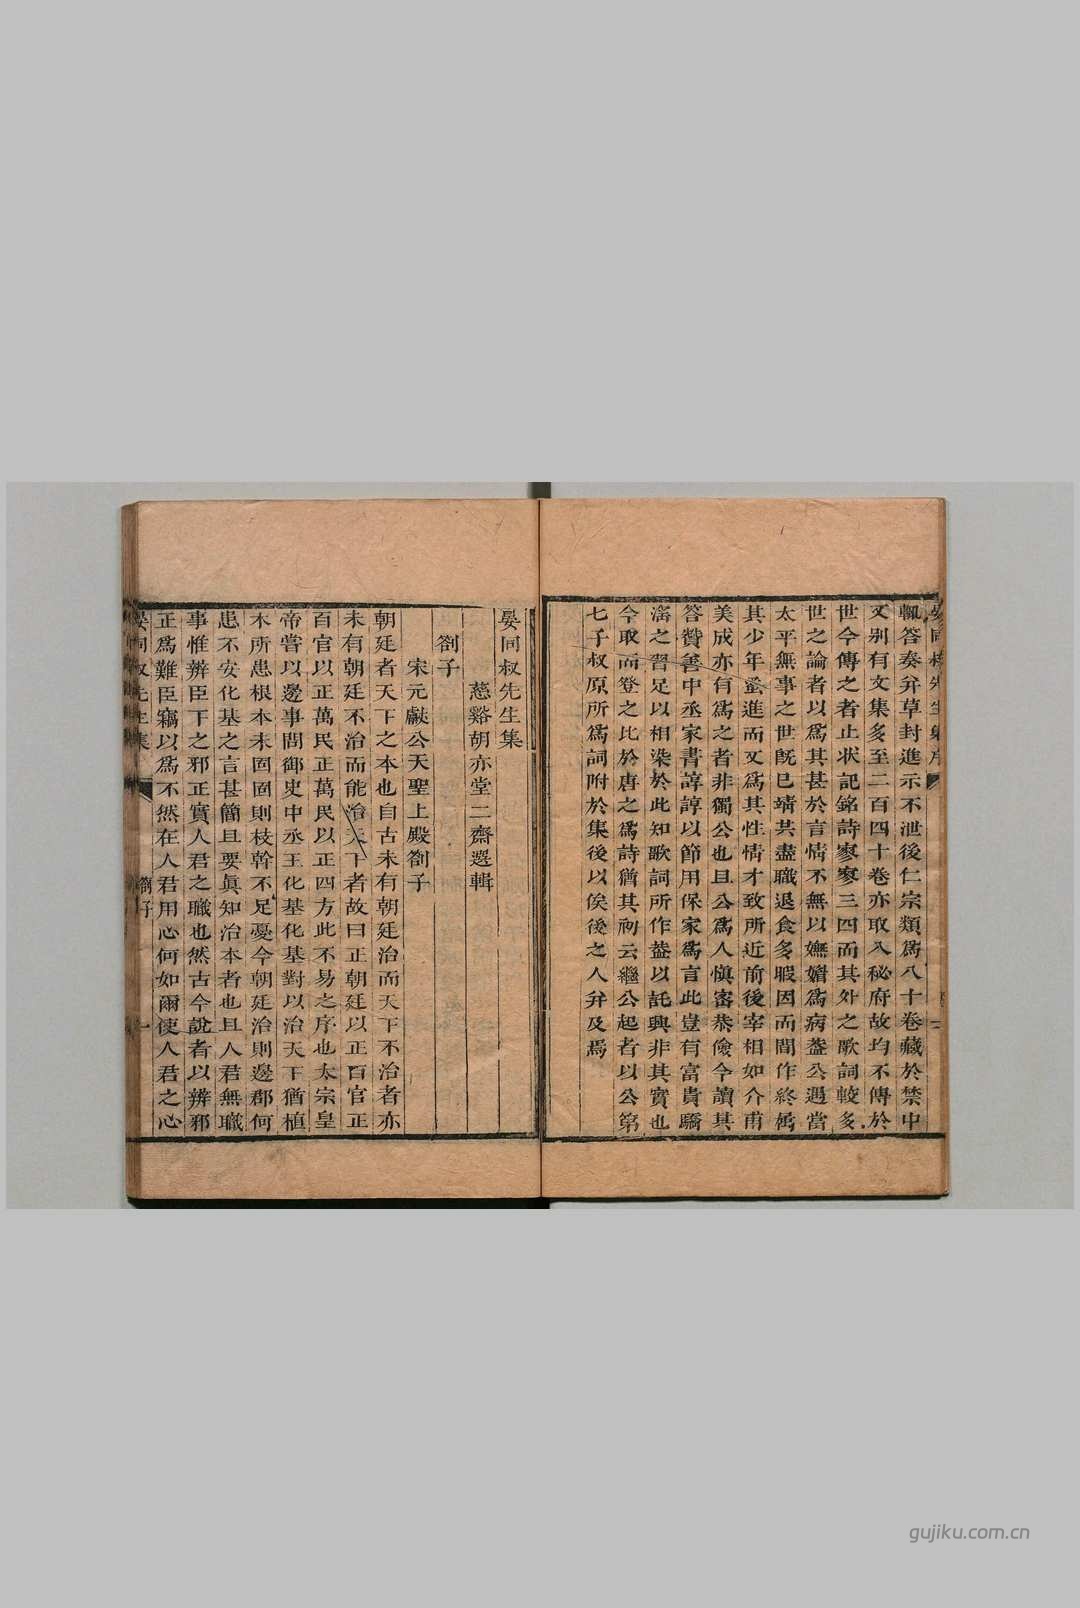 輒答奏弁草封進示不泄後仁宗類爲八十卷藏於禁中
又别有文集多至二百四十卷亦取入秘府故均不傳於
世今傳之者止狀記銘詩寥寥三四而其外之歌詞較多
世之論者以爲其甚於言情不無以嫵媚爲病葢公遇當
太平無事之世旣已靖共盡職退食多暇因而間作終屬
其少年蚤進而又爲其性情才致所近前後宰相如介甫
美成亦有爲之者非獨公也且公爲人愼審恭儉今讀其
答贊善中丞家書諄諄以節用保家爲言此豈有富貴驕
滛之習足以相染於此知歌詞所作葢以託興非其實也
今取而登之比於唐之爲詩猶其初云繼公起者以公第
七子叔原所爲詞附於集後以俟後之人弁及焉
晏同叔先生集
慈谿胡亦堂二齋選輯
劄子
宋元獻公天聖上殿劄子
朝廷者天下之本也自古未有朝廷治而天下不治者亦
未有朝廷不治而能治天下者故曰正朝廷以正百官正
百官以正萬民正萬民以正四方此不易之序也太宗皇
帝嘗以邊事問御史中丞王化基化基對以治天下猶植
木所患根本未固固則枝幹不足憂今朝廷治則邊郡何
患不安化基之言甚簡且要眞知治本者也且人君無職
事惟辨臣下之邪正實人君之職也然古今說者以辨邪
正爲難臣竊以爲不然在人君用心何如爾使人君之心
晏同叔先生集
劄子
一
gujiku.com.cn